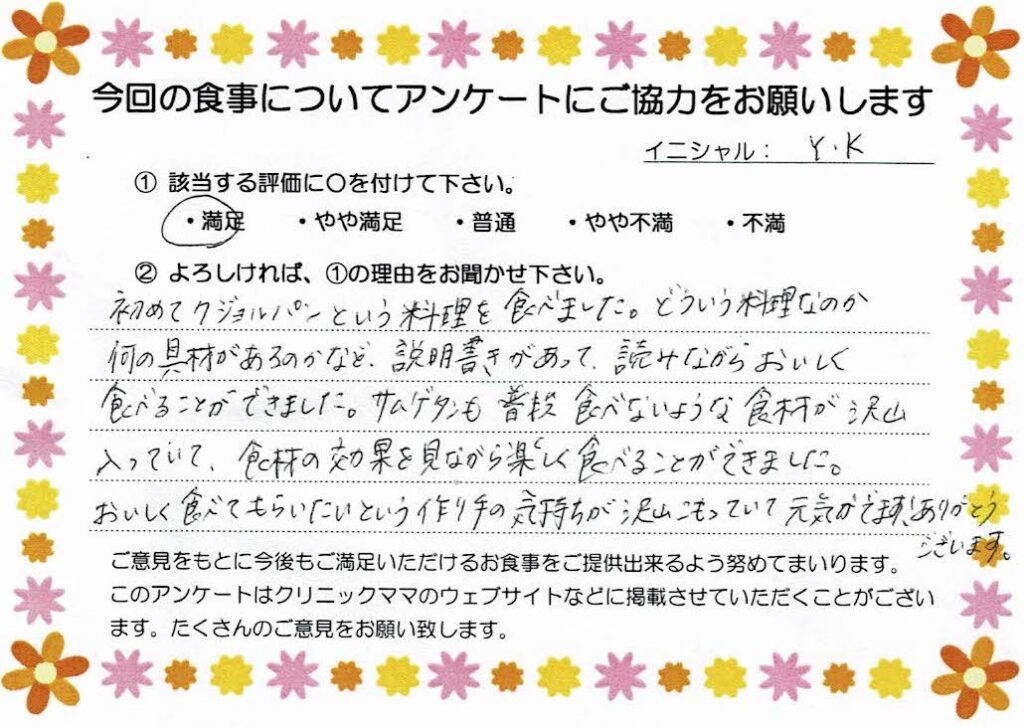 今回の食事についてアンケートにご協力をお願いします
イニシャル： Y.K
① 該当する評価に○を付けて下さい。
・満足 ・やや満足 ・普通 ・やや不満 ・不満
② よろしければ、①の理由をお聞かせ下さい。
初めてクジョルパンという料理を食べました。どういう料理なのか
何の具材があるのかなど、説明書きがあって、読みながらおいしく
食べることができました。サムゲタンも普段食べないような食材が沢山
入っていて、食材の効果を見ながら楽しく食べることができました。
おいしく食べてもらいたいという作り手の気持ちが沢山こもっていて元気がでます!ありがとう
ございます。
ご意見をもとに今後もご満足いただけるお食事をご提供出来るよう努めてまいります。
このアンケートはクリニックママのウェブサイトなどに掲載させていただくことがござい
ます。たくさんのご意見をお願い致します。